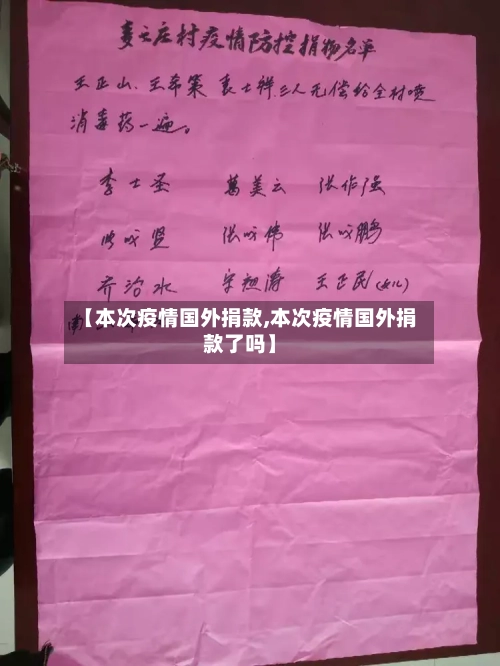 庄村疫情防控捐物名单
王正山、王希策 袁士祥三人无偿给全村喷
消毒药一遍。
李士圣 葛美云 张作强
贤 张成伟 张成鹏
乔治水 宋祖涛 王正民(女儿)
南
【本次疫情国外捐款,本次疫情国外捐
款了吗】